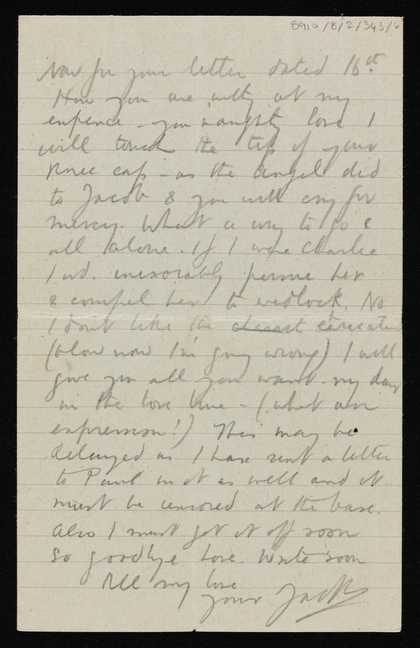 8910/8/2/343/
Now for your letter dated 16th.
How you are witty at my
expence - you naughty love I
will touch the tip of your
knee cap - as the angel did
to Jacob & you will cry for
mercy. What a way to go &
all alone. If I were Charlie
I wd. inexorably pursue her
& compel her to wedlock. No
I don't like the
(blow now I'm going wrong) I will
give you all you want my dear
in the love line - (what an
expression!) This may be
delayed as I have sent a letter
to Paul in it as well and it
must be censored at the base.
Also I must get it off soon
so goodbye love. Write soon
All my love
your Jack